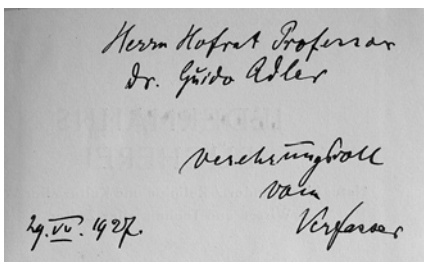 Herrn Hofrat Professor
Dr. Guido Adler
verehrungsvoll
vom
Verfasser
1927.